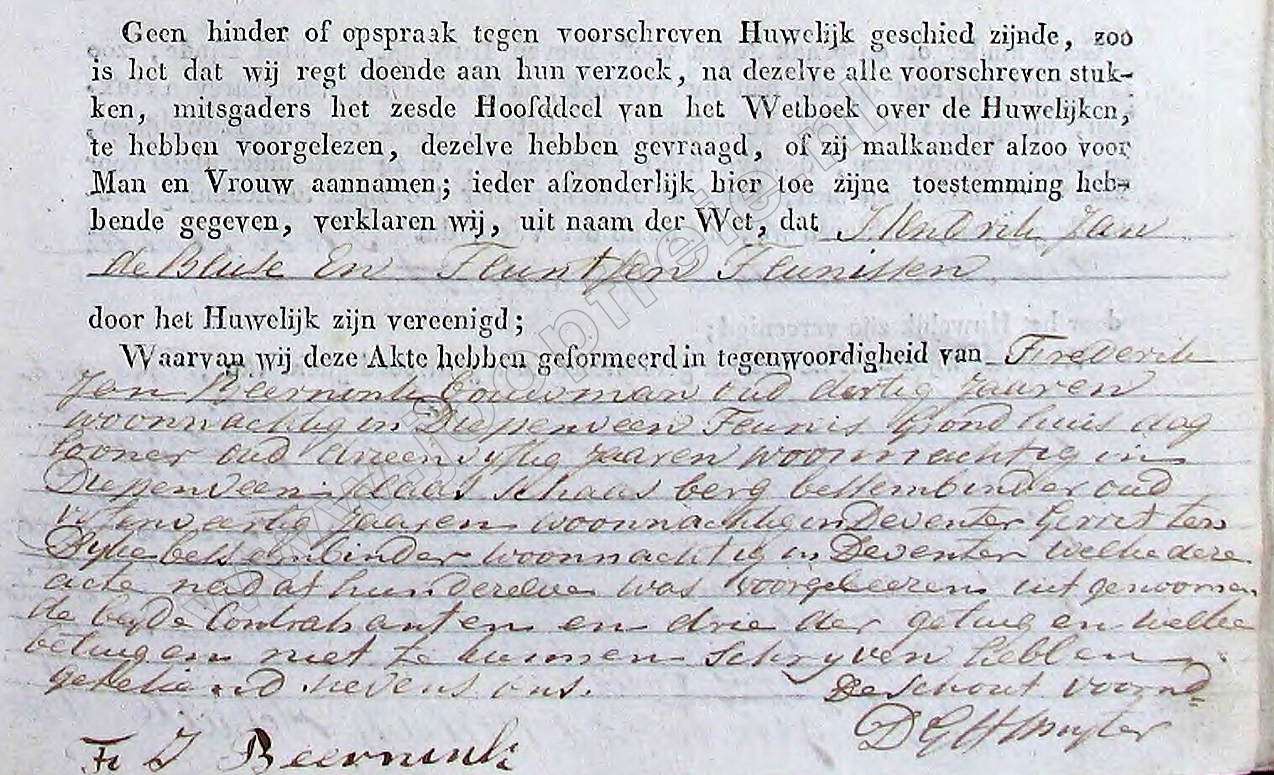 Geen hinder of opspraak tegen voorschreven Huwelijk geschied zijnde, zoo
is het dat wij regt doende aan hun verzoek, na dezelve alle voorschreven stuk-
ken, mitsgaders het zesde Hoofddeel van het Wetboek over de Huwelijken,
te hebben voorgelezen, dezelve hebben gevraagd, of zij malkander alzoo voor
Man en Vrouw aannamen; ieder afzonderlijk hier toe zijne toestemming heb-
bende gegeven, verklaren wij, uit naam der Wet, dat Hendrik Jan
de En Teuntjen Teunissen
door het Huwelijk zijn vereenigd;
Waarvan wij deze Akte hebben geformeerd in tegenwoordigheid van Frederik
Jan Beernink bouwman oud dertig Jaaren
woonnachtig in Diepenveen Teunis dag
looner oud drieenvyftig Jaaren woonnachtig in
Diepenveen klaas schaas berg bessembinder oud
veertig Jaaren woonnachtig in Deventer Gerrit ten
Dyke bessembinder woonnachtig in Deventer welke deze
acte nadat hun dezelve was voorgeleezen uit genoomen
de beyde Contrahanten en drie der getuigen welke
betuigen niet te kunnen Schryven hebben
getekend nevens ons. De Schout voornd
Fr J Beernink